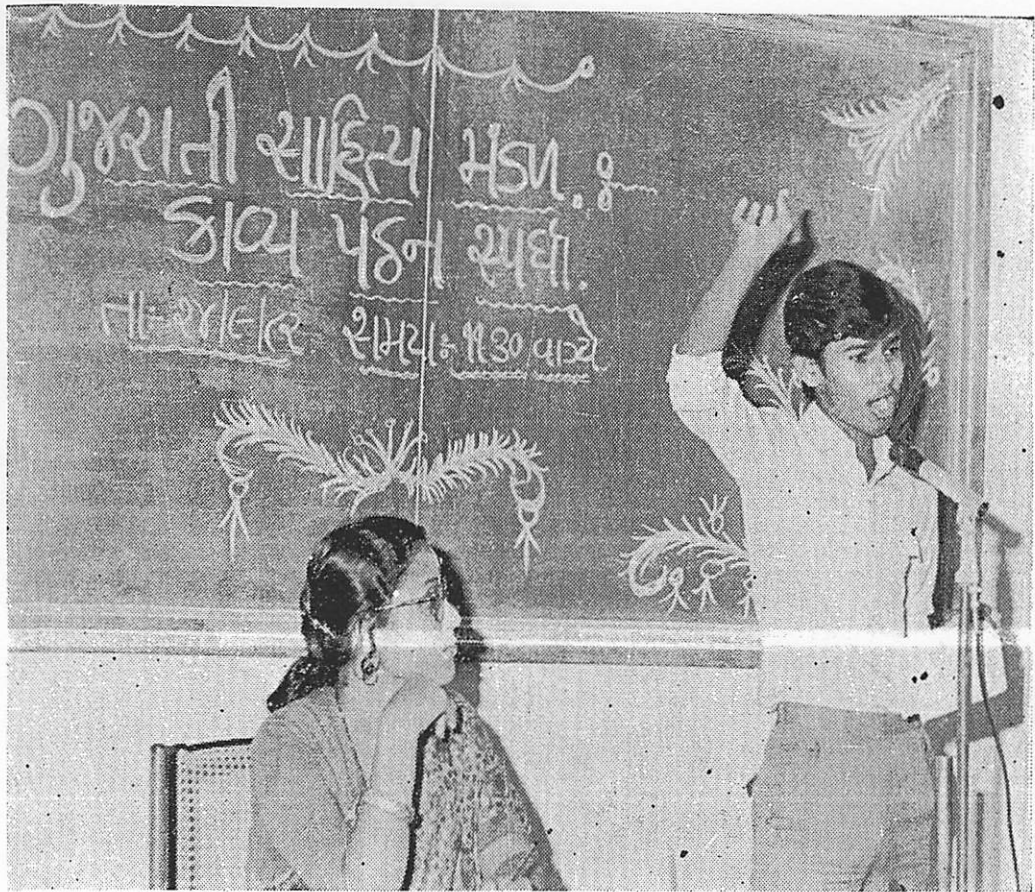 ગુજરાતી સાહિત્ય મંડળ.:-
કાવ્ય પઠન સ્પર્ધા.
તા:- સમય:- ૧૧.૩૦ વાગ્યે